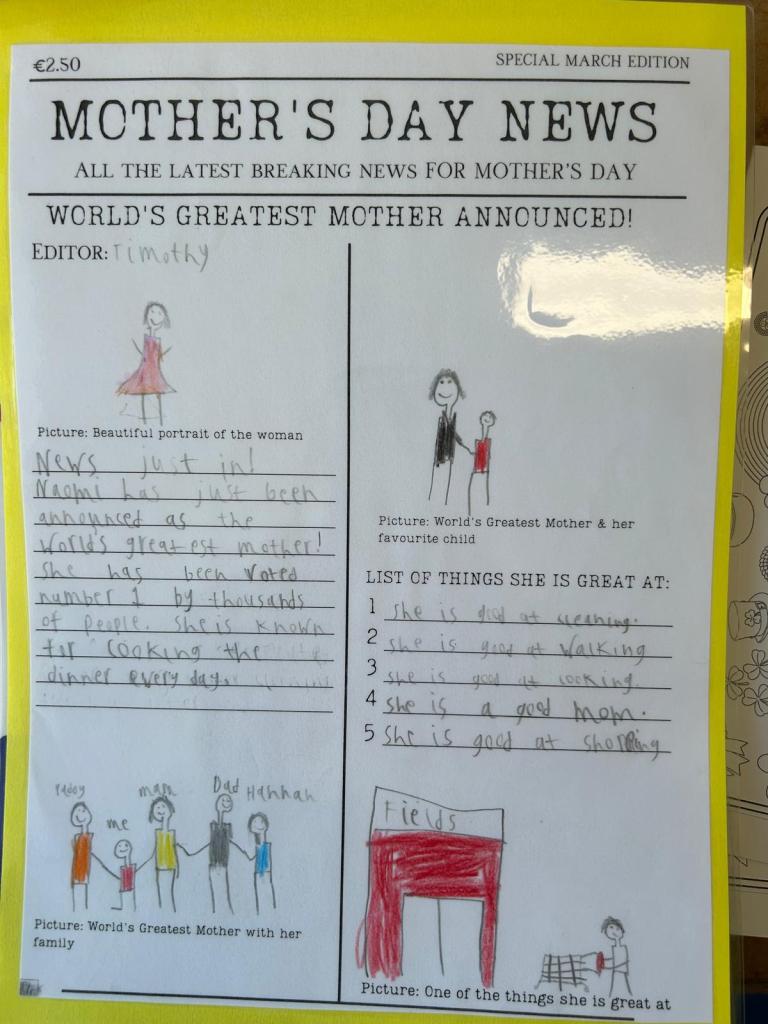 €2.50
SPECIAL MARCH EDITION
MOTHER'S DAY NEWS
ALL THE LATEST BREAKING NEWS FOR MOTHER'S DAY
WORLD'S GREATEST MOTHER ANNOUNCED!
EDITOR: Timothy
Picture: Beautiful portrait of the woman
News just in!
Naomi has just been
announced as the
world's greatest mother!
She has been voted
number 1 by thousands
of people. She is known
for cooking the
dinner every day.
Paddy me mam Dad Hannah
Picture: World's Greatest Mother with her
family
Picture: World's Greatest Mother & her
favourite child
LIST OF THINGS SHE IS GREAT AT:
1 she is good at cleaning.
2 she is good at walking
3 she is good at cooking.
4 she is a good mom.
5 she is good at shopping
Fields
Picture: One of the things she is great at